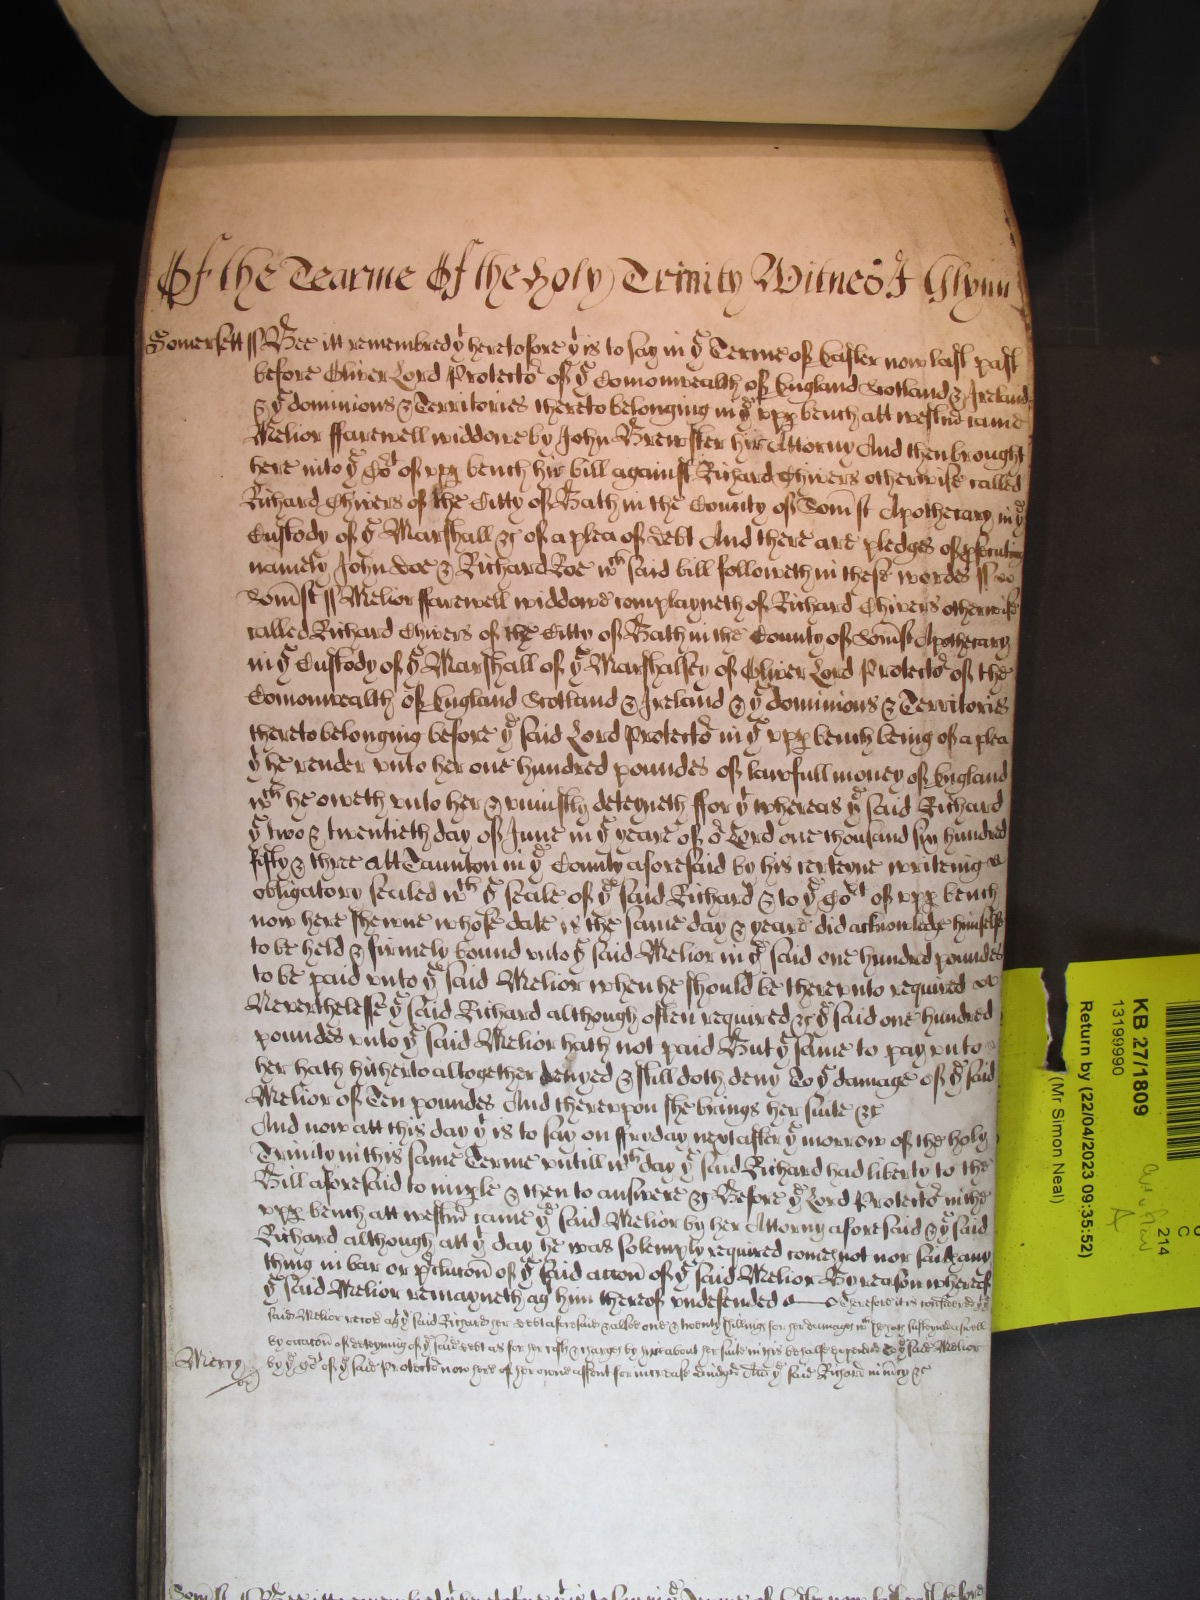 Of the Tearme Of the Holy Trinity Witnes J Glynn
Somersett ss Bee itt remembred yt heretofore yt is to say in ye Terme of Easter now last past
before Oliver Lord Protector of ye Comonwealth of England Scotland & Ireland
& ye dominions & Territories thereto belonging in ye vpp bench att westmr came
Melior ffarewell widdowe by John Brewster hir Attorny And then brought
here into ye Cort of vpp bench hir bill against Richard Chivers otherwise called
Richard Chivers of the Citty of Bath in the County of Somst Apothecary in ye
Custody of ye Marshall &c of a plea of debt And there are pledges of psecuting
namely John Doe & Richard Roe wch said bill followeth in these wordes ss
Somst ss Melior ffarewell widdowe complayneth of Richard Chivers otherwise
called Richard Chivers of the Citty of Bath in the County of Somst Apothecary
in ye Custody of ye Marshall of ye Marshalsey of Oliver Lord Protector of the
Comonwealth of England Scotland & Ireland & ye dominions & Territories
thereto belonging before ye said Lord Protector in ye vpp bench being of a plea
yt he render vnto her one hundred poundes of lawfull money of England
wch he oweth vnto her & vniustly deteyneth ffor yt whereas ye said Richard
ye two & twentieth day of June in ye yeare of or Lord one thousand six hundred
fifty & three att Taunton in ye County aforesaid by his certeyne writeing
obligatory sealed wth ye seale of ye said Richard & to ye Cort of vpp bench
now here shewne whose date is the same day & yeare did acknowledge himselfe
to be held & firmely bound vnto ye said Melior in ye said one hundred poundes
to be paid vnto ye said Melior when he should be therevnto required
Neverthelesse ye said Richard although often required &c ye said one hundred
poundes vnto ye said Melior hath not paid But ye same to pay vnto
her hath hitherto altogether denyed & still doth deny To ye damage of ye said
Melior of Ten poundes And therevpon she brings her suite &c
And now att this day yt is to say on ffryday next after ye morrow of the holy
Trinity in this same Terme vntill wch day ye said Richard had liberty to the
Bill aforesaid to imple & then to answere &c Before ye Lord Protector in the
vpp bench att westmr came ye said Melior by her Attorny aforesaid & ye said
Richard although att yt day he was solemply required comes not nor said any
thing in bar or pclusion of ye said accon of ye said Melior By reason whereof
ye said Melior remayneth agt him thereof vndefended Therefore it is considered yt ye
said Melior recover agt ye said Richard her debt aforesaid & alsoe one & twenty shillings for her damages wch she hath susteyned aswell
by occation of deteyning of ye said debt as for her costs & charges by her about her suite in this behalfe expended to ye said Melior
by ye Cort of ye said Protector now here of her owne assent for increase adiudged And ye said Richard in mercy &c
Mercy
KB 27/1809
13199990
Return by (22/04/2023 09:35:52)
(Mr Simon Neal)
214
A